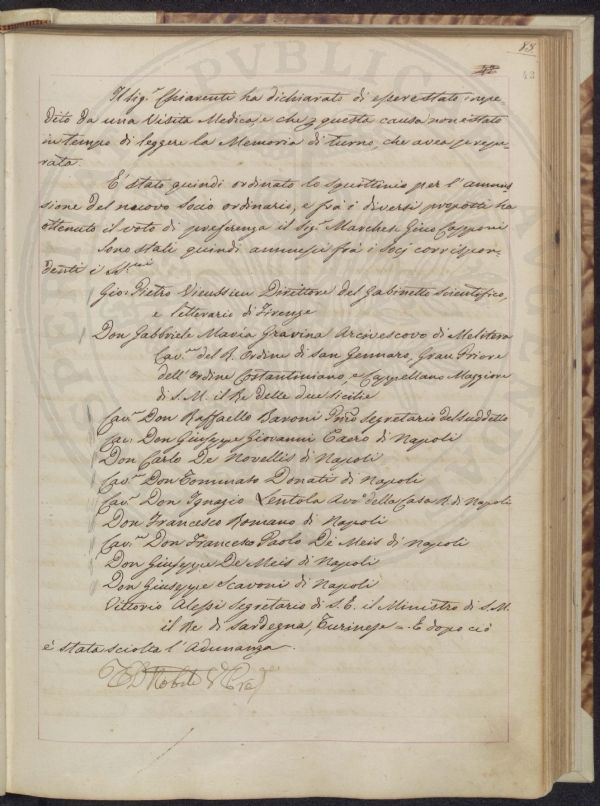 88
42
43
Il Sig.r Chiarenti ha dichiarato di essere stato impe-
dito da una Visita Medica, e che p questa causa non è stato
in tempo di leggere la Memoria di turno, che avea prepa-
rata.
E' stato quindi ordinato lo squittinio per l'ammis
sione del nuovo Socio ordinario, e fra i diversi proposti ha
ottenuto il voto di preferenza il Sig.r March.se Gino Capponi
Sono stati quindi ammessi fra i Socj corrispon-
denti i SS.ri
Gio: Pietro Vieussieu Direttore del Gabinetto Scientifico,
e letterario di Firenze
Don Gabbriele Maria Gravina Arcivescovo di Melitene
Cav.re del R. Ordine di San Gennaro, Gran Priore
dell'Ordine Costantiniano, e Cappellano Maggiore
di S. M. il Re delle due Sicilie
Cav.r Don Raffaello Baroni Pmo Segretario del suddetto
Cav: Don Giuseppe Giovanni Caero di Napoli
Don Carlo De Novellis di Napoli
Cav.re Don Tommaso Donati di Napoli
Cav.r Don Ignazio Lentola Avv.o della Casa R. di Napoli
Don Francesco Romano di Napoli
Cav.re Don Francesco Paolo De Meis di Napoli
Don Giuseppe De Meis di Napoli
Don Giuseppe Scavoni di Napoli
Vittorio Alessi Segretario di S. E. il Ministro di S. M.
il Re di Sardegna, Turinese = E dopo ciò
è stata sciolta l'Adunanza.